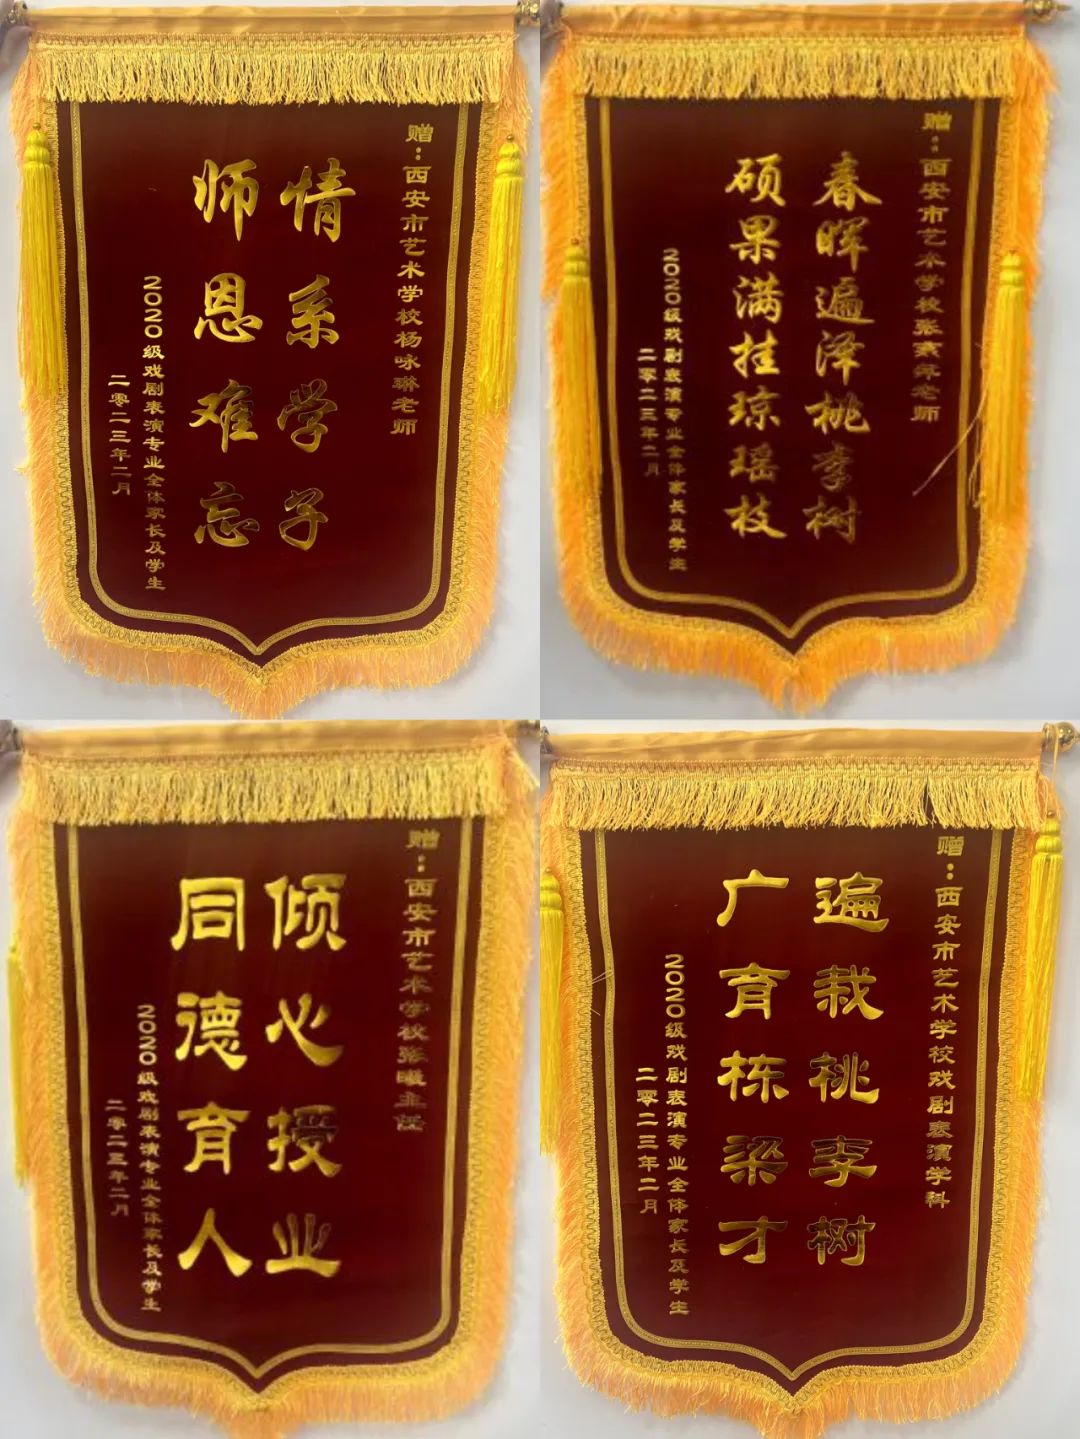 赠:西安市艺术学校杨咏琳老师
情系学子
师恩难忘
2020级戏剧表演专业全体家长及学生
二零二三年二月
赠:西安市艺术学校张
老师
春晖遍泽桃李树
硕果满挂琼瑶枝
2020级戏剧表演专业全体家长及学生
二零二三年二月
赠:西安市艺术学校张曦主任
倾心授业
同德育人
2020级戏剧表演专业全体家长及学生
二零二三年二月
赠:西安市艺术学校戏剧表演学科
遍栽桃李树
广育栋梁才
2020级戏剧表演专业全体家长及学生
二零二三年二月